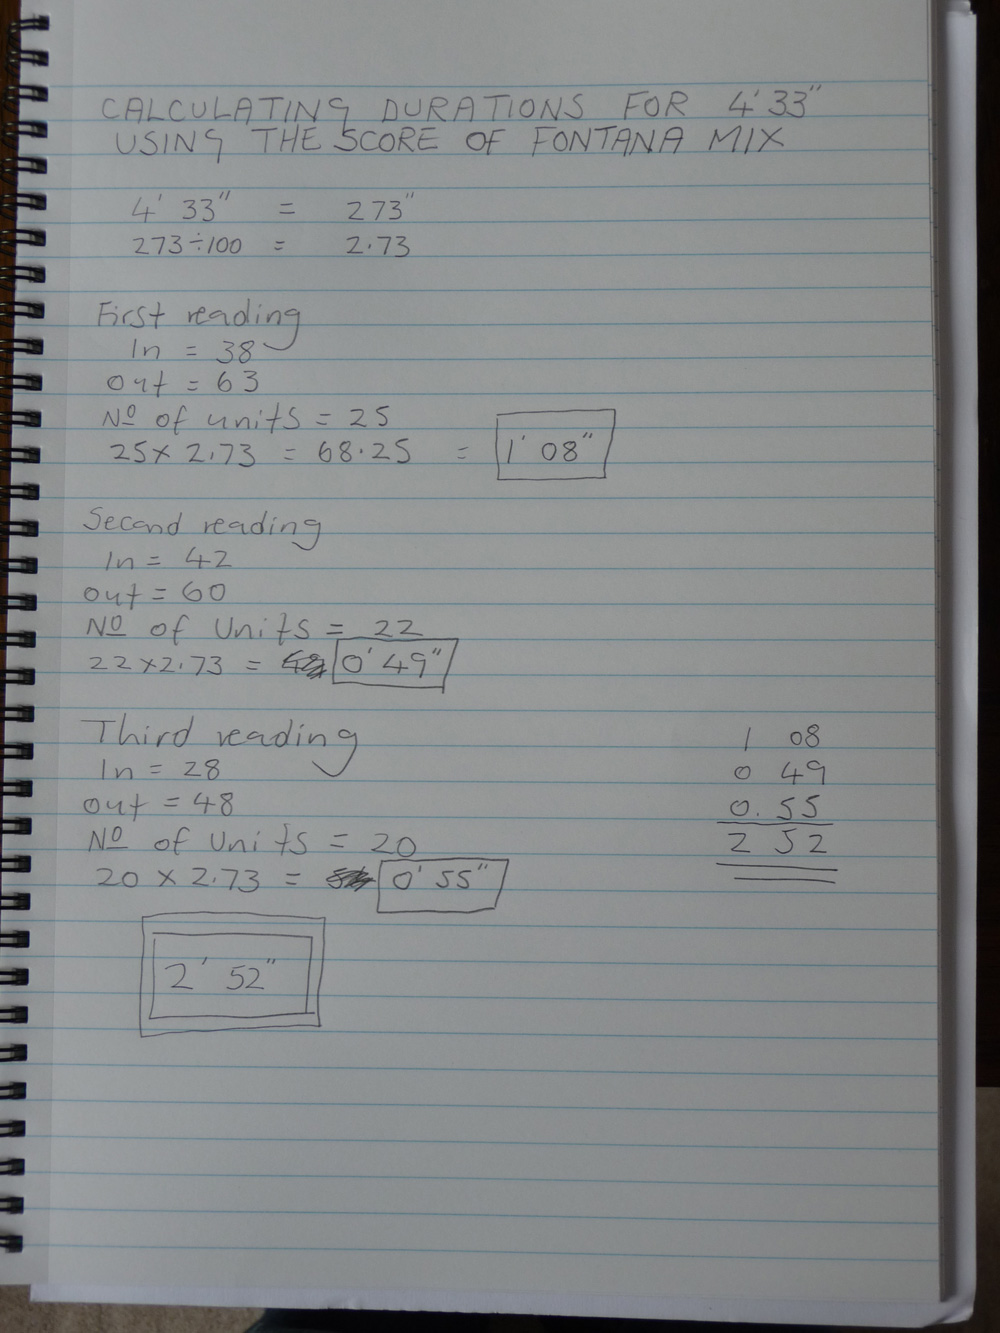 CALCULATING DURATIONS FOR 4' 33"
USING THE SCORE OF FONTANA MIX
4' 33" = 273"
273÷100 = 2.73
First reading
In = 38
Out = 63
Nº of units = 25
25 x 2.73 = 68.25 = 1' 08"
Second reading
In = 42
Out = 60
Nº of Units = 22
22 x 2.73 = 0' 49"
Third reading
In = 28
Out = 48
Nº of Units = 20
20 x 2.73 = 0' 55"
1 08
0 49
0.55
2 52
2' 52"